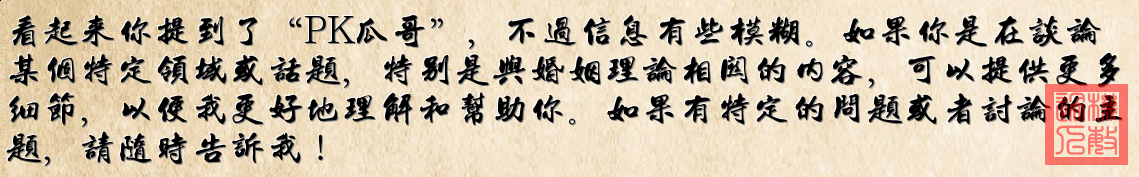 看起来你提到了“PK瓜哥”，不過信息有些模糊。如果你是在談論
某個特定領域或話題，特别是與婚姻理論相関的内容，可以提供更多
细節，以便我更好地理解和幫助你。如果有特定的問題或者討論的主
題，請隨時告訴我！